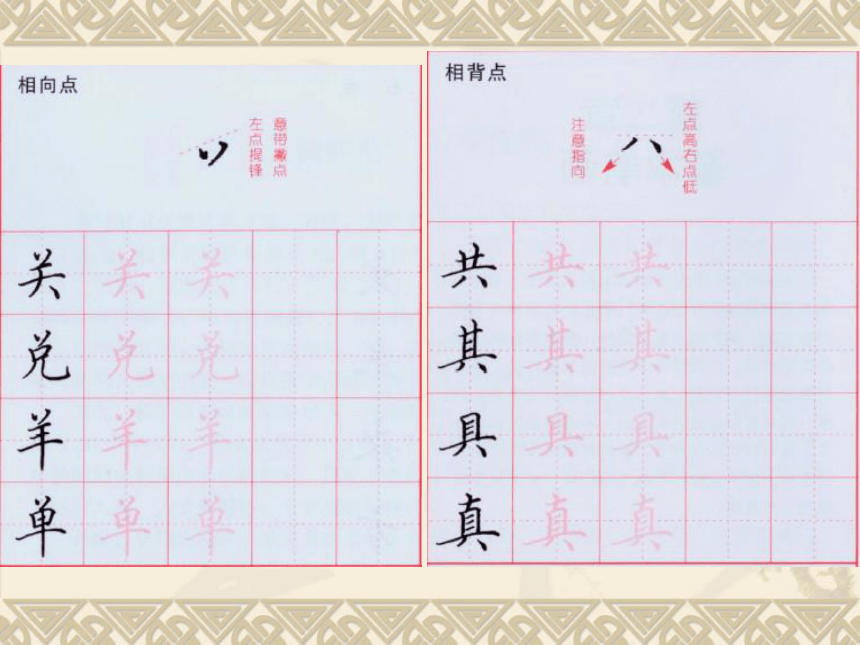 相向点
左点提锋
意带撇点
关 关 关
兑 兑 兑
羊 羊 羊
单 单 单
相背点
注意指向
左点高右点低
共 共 共
其 其 其
具 具 具
真 真 真